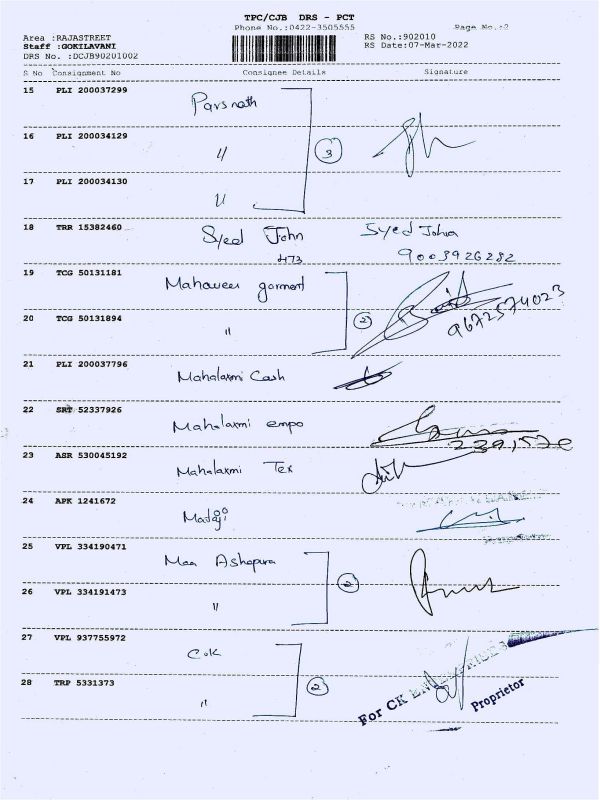 TPC/CJB DRS - PCT
Phone No.:0422-3505555 Page No.:2
Area :RAJASTREET RS No.:902010
Staff :GOKILAVANI RS Date:07-Mar-2022
DRS No. :DCJB90201002
S No Consignment No Consignee Details Signature
15 PLI 200037299 Parsnath
16 PLI 200034129 〃 3
17 PLI 200034130 〃
18 TRR 15382460 Syed John Syed John
473 9003926282
19 TCG 50131181 Mahaveer garment
20 TCG 50131894 〃 2 9672574023
21 PLI 200037796 Mahalaxmi Cash
22 SRT 52337926 Mahalaxmi empo
23 ASR 530045192 Mahalaxmi Tex
24 APK 1241672 Mataji
25 VPL 334190471 Maa Ashapura
26 VPL 334191473 〃 2
27 VPL 937755972 C.K
28 TRP 5331373 〃 2
For CK ENTERPRISES
Proprietor